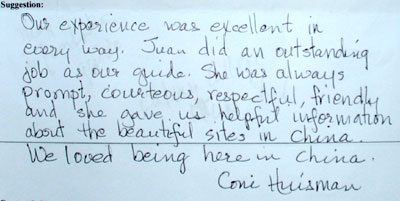 Suggestion:
Our experience was excellent in
every way. Juan did an outstanding
job as our guide. She was always
prompt, courteous, respectful, friendly
and she gave us helpful information
about the beautiful sites in China.
We loved being here in China.
Coni Huisman